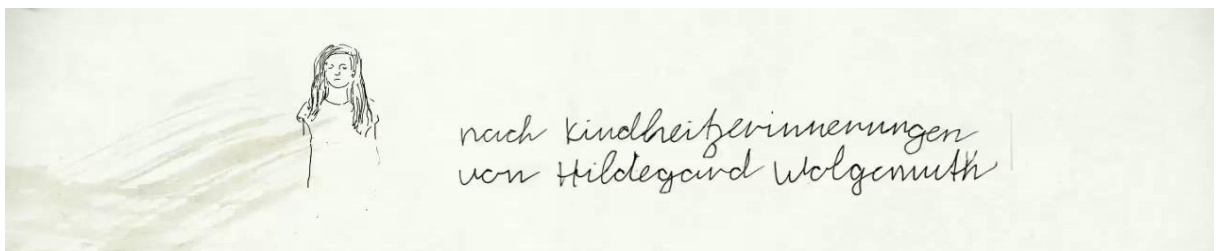 nach Kindheitserinnerungen
von Hildegard Wolgemuth